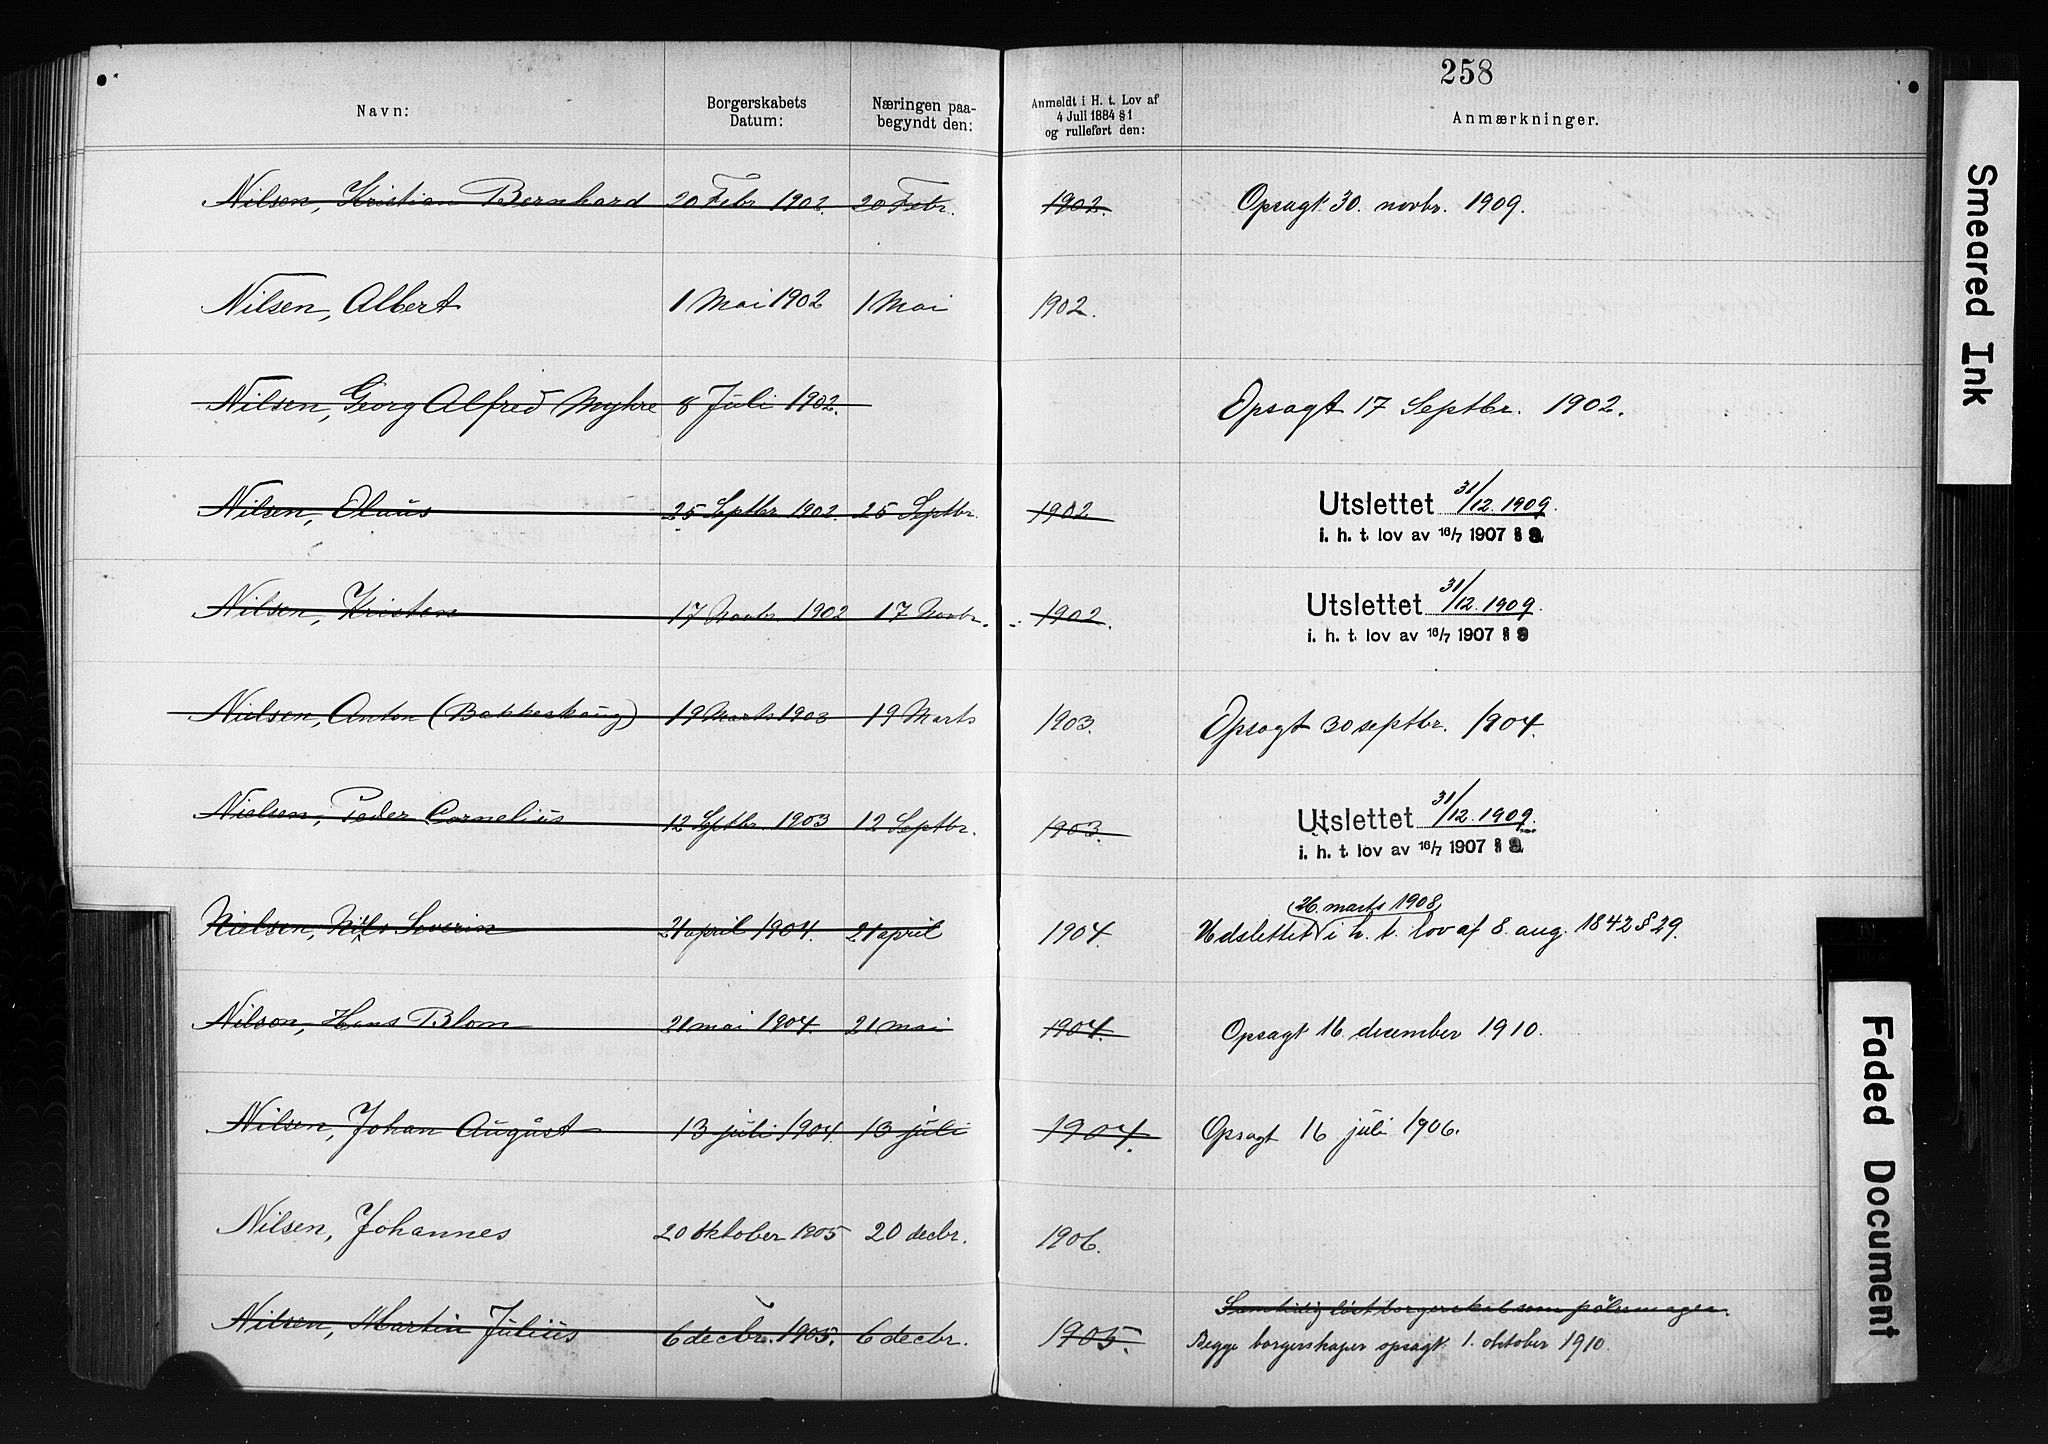 258
Navn: Borgerskabets Datum: Næringen paa- begyndt den: Anmeldt i H. t. Lov af 4 Juli 1884 § 1 og rulleført den: Anmærkninger.
Nilsen, Kristian Bernhard 20 Febr 1902. 20 Febr. 1902. Opsagt 30. novbr. 1909.
Nilsen, Albert 1 Mai 1902 1 Mai 1902.
Nilsen, Georg Alfred Myhre 8 Juli 1902. Opsagt 17 Septbr. 1902.
Nilsen, Olaus 25 Septbr 1902. 25 Septbr. 1902 Utslettet 31/12. 1909.
i. h. t. lov av 16/7 1907 § 9
Nilsen, Kristen 17 Novbr 1902 17 Novbr. 1902. Utslettet 31/12. 1909.
i. h. t. lov av 16/7 1907 § 9
Nielsen, Anton (Bakkeskaug) 19 Marts 1903 19 Marts 1903. Opsagt 30 septbr. 1904.
Nielsen, Peder Cornelius 12 Septbr. 1903 12 Septbr. 1903. Utslettet 31/12. 1909.
i. h. t. lov av 16/7 1907 § 9
26. marts 1908
Nielsen, Nils Severin 21 april 1904. 21 april 1904. Udslettet i h. t. lov af 8. aug. 1842 § 29.
Nilson, Hans Blom 21 mai 1904. 21 mai 1904. Opsagt 16. december 1910.
Nilsen, Johan August 13 juli 1904. 13 juli 1904. Opsagt 16 juli 1906.
Nilsen, Johannes 20 oktober 1905 20 decbr. 1906.
Samtidig løst borgerskab som pølsemager.
Nilsen, Martin Julius 6 decbr. 1905. 6 decbr. 1905. Begge borgerskaper opsagt 1. oktober 1910.
Smeared Ink
Faded Document